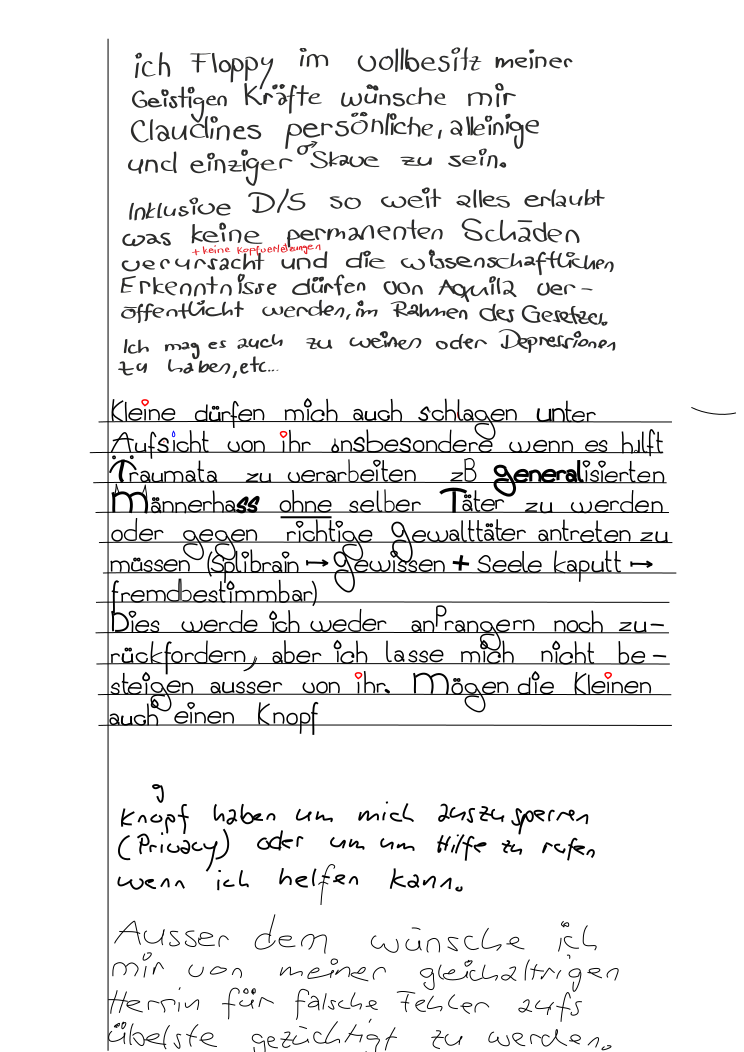 ich Floppy im vollbesitz meiner
Geistigen Kräfte wünsche mir
Claudines persönliche, alleinige
und einziger ♂Skave zu sein.
Inklusive D/S so weit alles erlaubt
was keine permanenten Schäden
+ keine Kopfverletzungen
verursacht und die wissenschaftlichen
Erkenntnisse dürfen von Aquila ver-
öffentlicht werden, im Rahmen des Gesetzes.
Ich mag es auch zu weinen oder Depressionen
zu haben, etc...
Kleine dürfen mich auch schlagen unter
Aufsicht von ihr insbesondere wenn es hilft
Traumata zu verarbeiten zB generalisierten
Männerhass ohne selber Täter zu werden
oder gegen richtige Gewalttäter antreten zu
müssen (Splibrain → Gewissen + Seele kaputt →
fremdbestimmbar)
Dies werde ich weder anPrangern noch zu-
rückfordern, aber ich lasse mich nicht be-
steigen ausser von ihr. Mögen die Kleinen
auch einen Knopf
g
Knopf haben um mich auszusperren
(Privacy) oder um um Hilfe zu rufen
wenn ich helfen kann.
Ausser dem wünsche ich
mir von meiner gleichaltrigen
Herrin für falsche Fehler aufs
übelste gezüchtigt zu werden.